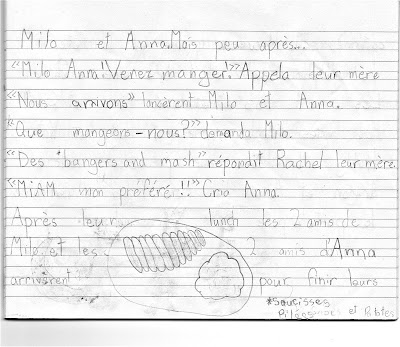 Milo et Anna. Mais peu après...
"Milo Anna! Venez manger!" Appela leur mère
"Nous arrivons" lancèrent Milo et Anna.
"Que mangeons-nous?" demanda Milo.
"Des "bangers and mash" répondit Rachel leur mère.
"MiAM mon préféré!!" Cria Anna.
Après leur lunch les 2 amis de
Milo et les 2 amis d'Anna
arrivèrent pour finir leurs
*Saucisses
et